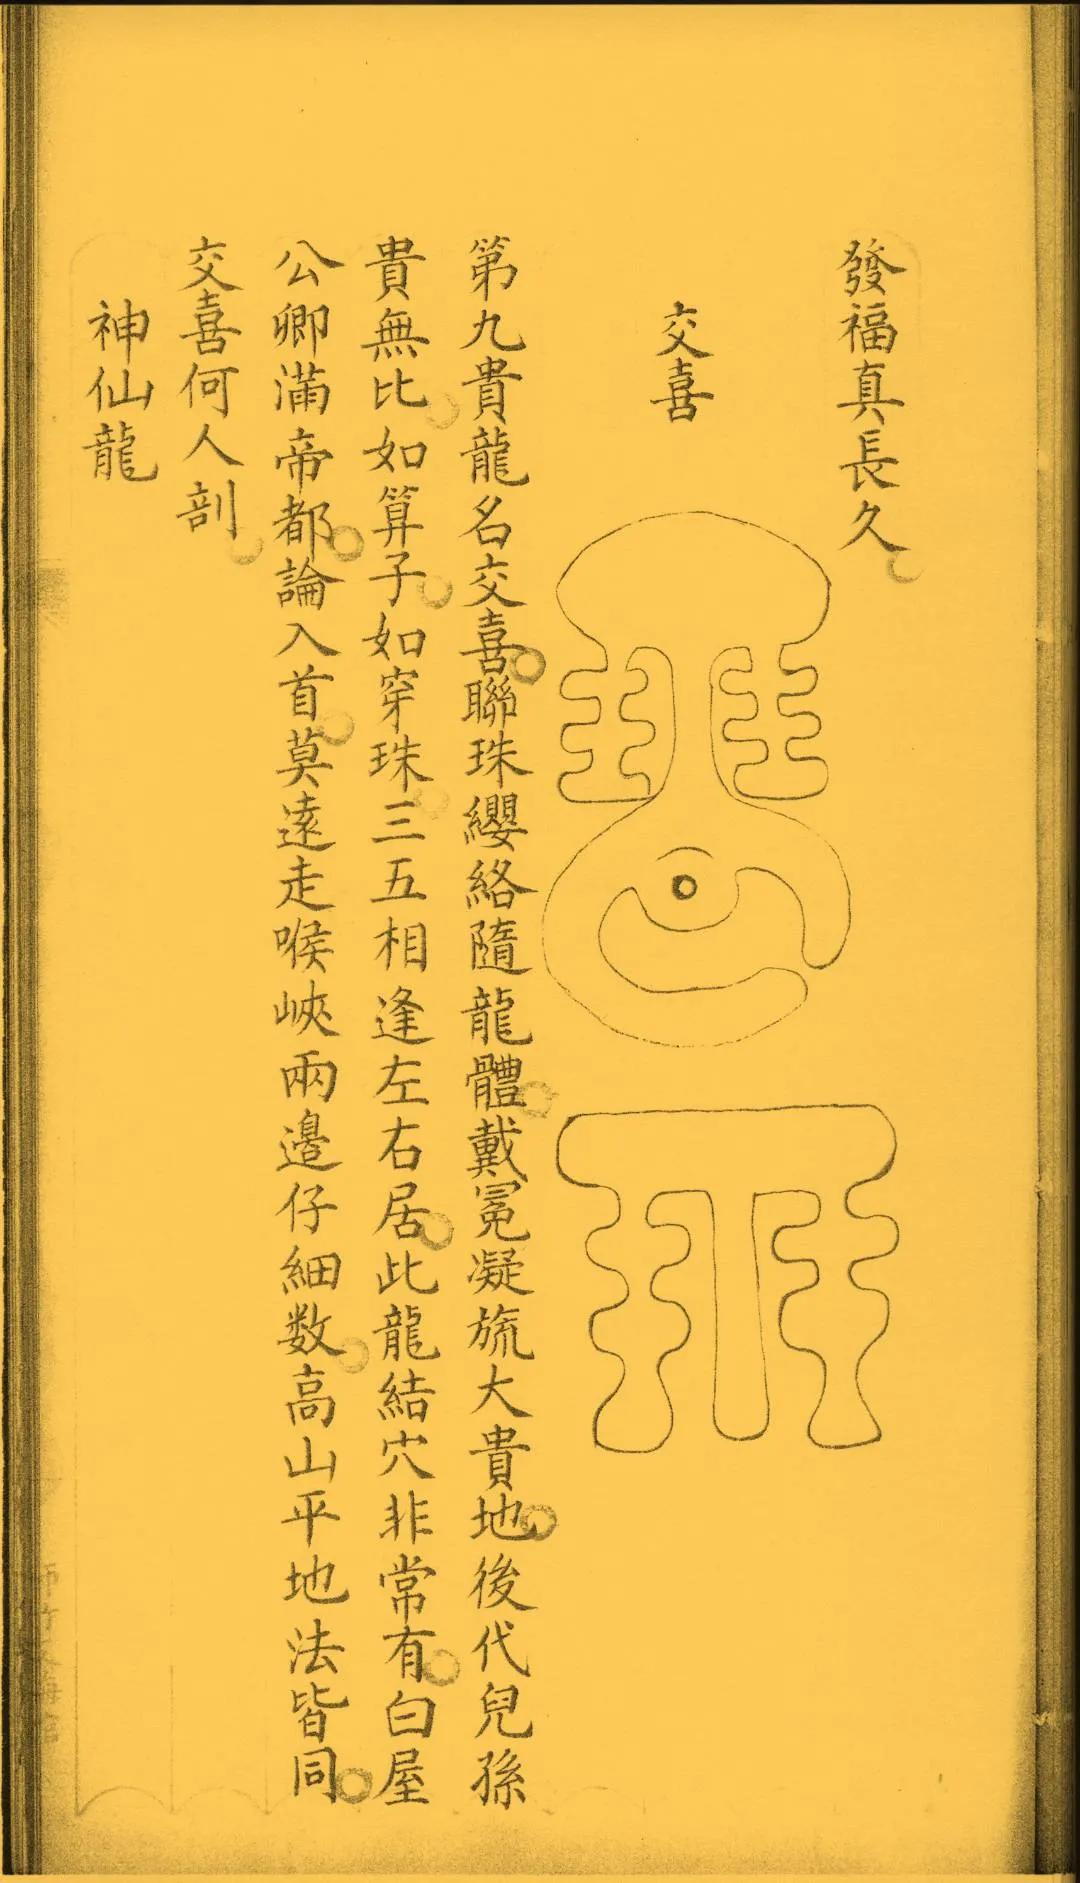 發福真長久
交喜
第九貴龍名交喜聯珠纓絡隨龍體戴冕凝旒大貴地後代兒孫
貴無比如算子如穿珠三五相逢左右居此龍結穴非常有白屋
公卿滿帝都論入首莫遠走喉峽兩邊仔細数高山平地法皆同
交喜何人剖
神仙龍